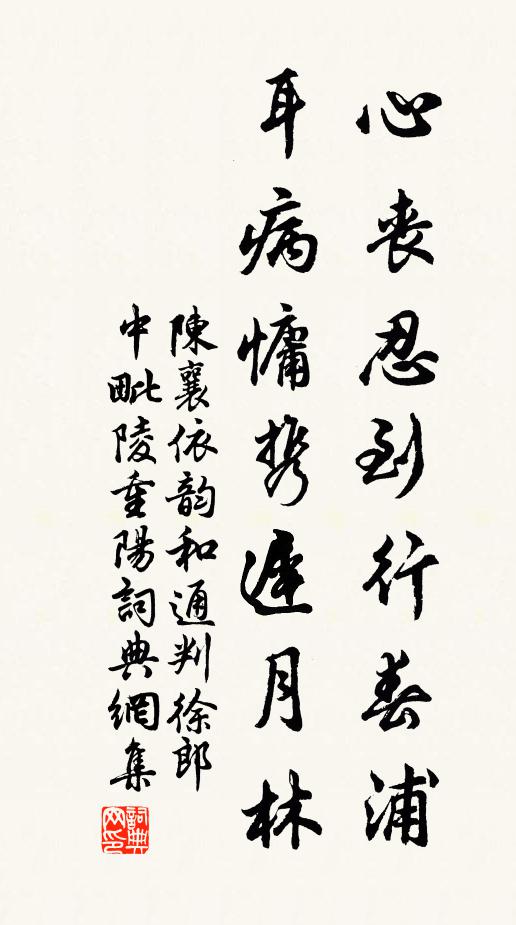 心喪忍到行春浦
耳病慵携遲月林
陳襄依韵和通判徐郎
中毗陵重陽詞典網集
詞典网印